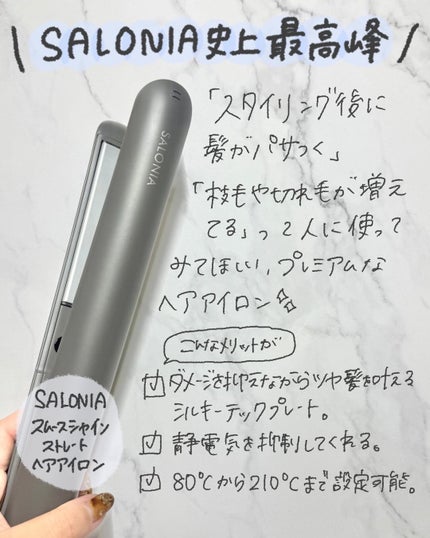 \ SALONIA史上最高峰 /
「スタイリング後に
髪がパサつく」
「枝毛や切れ毛が増え
てる」って人に使って
みてほしい、プレミアムな
ヘアアイロン✨
こんなメリットが
☑ ダメージを抑えながらツヤ髪を叶える
シルキーテックプレート。
☑ 静電気を抑制してくれる。
☑ 80℃から210℃まで設定可能。
SALONIA
SALONIA
スムースシャイン
ストレート
ヘアアイロン